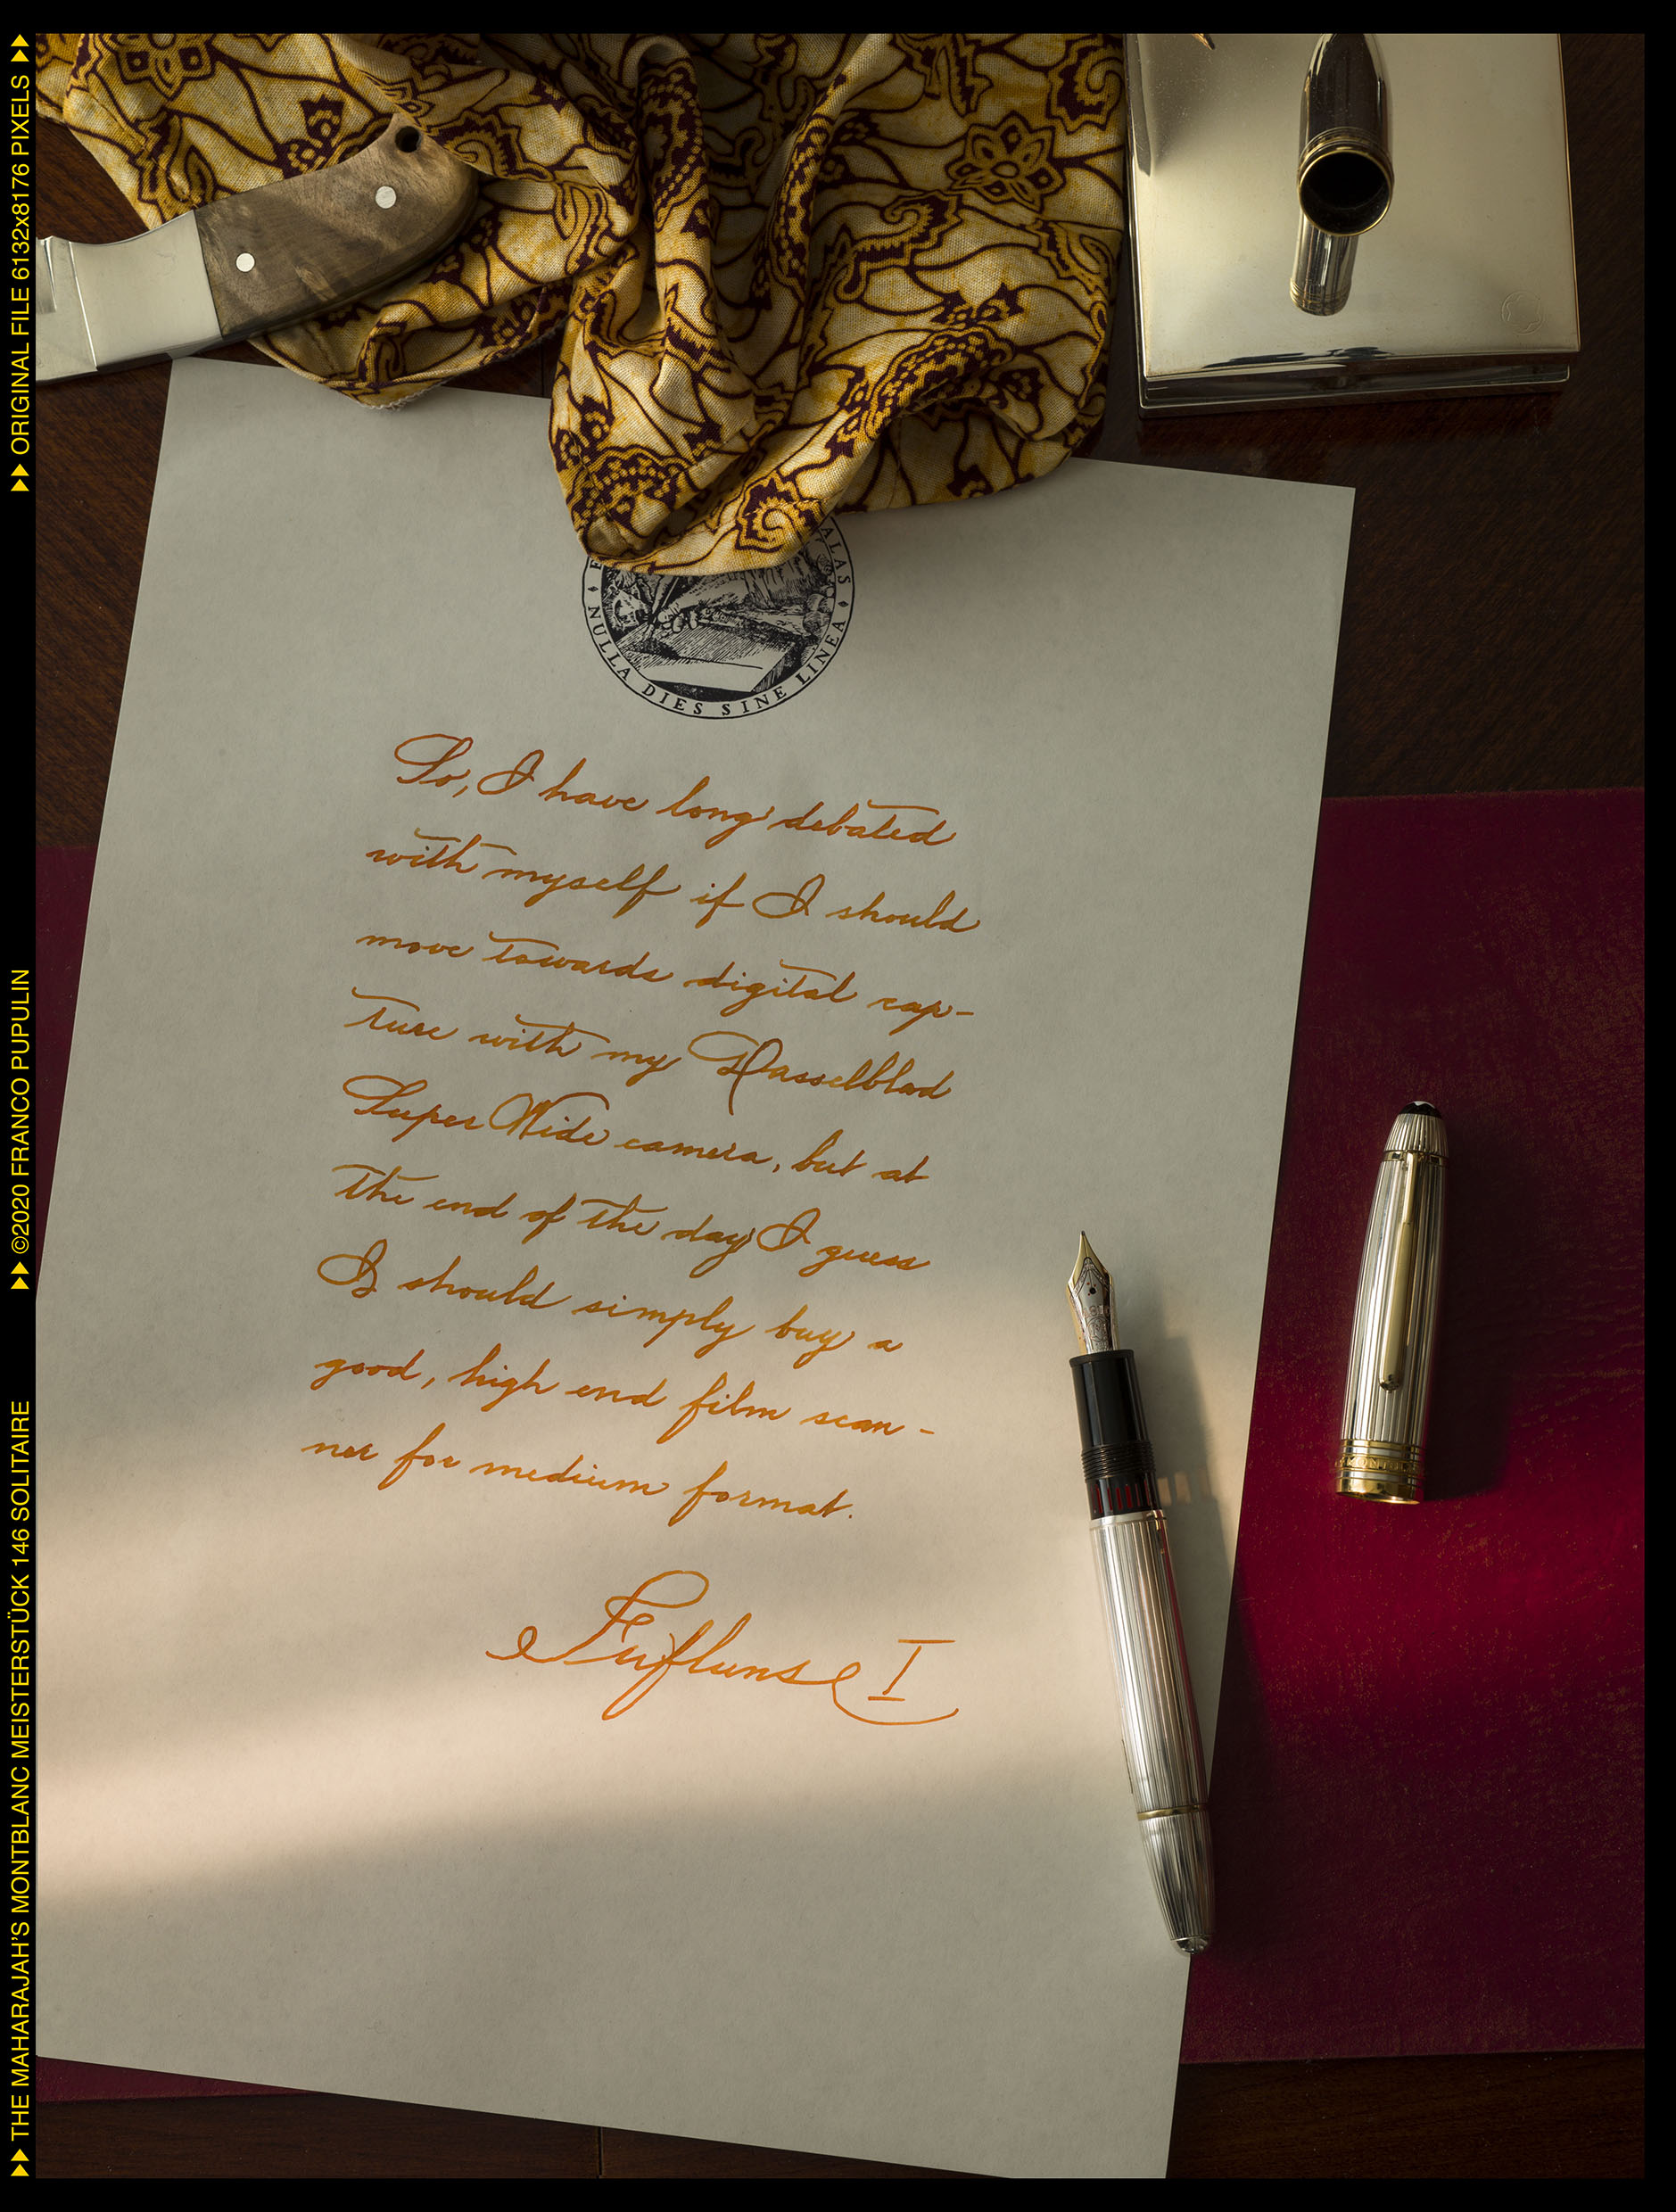 ORIGINAL FILE 6132x8176 PIXELS
©2020 FRANCO PUPULIN
THE MAHARAJAH'S MONTBLANC MEISTERSTÜCK 146 SOLITAIRE
ALAS
NULLA DIES SINE LINEA
So, I have long debated
with myself if I should
move towards digital cap-
ture with my Hasselblad
Super Wide camera, but at
the end of the day I guess
I should simply buy a
good, high end film scan-
ner for medium format.
Fufluns I